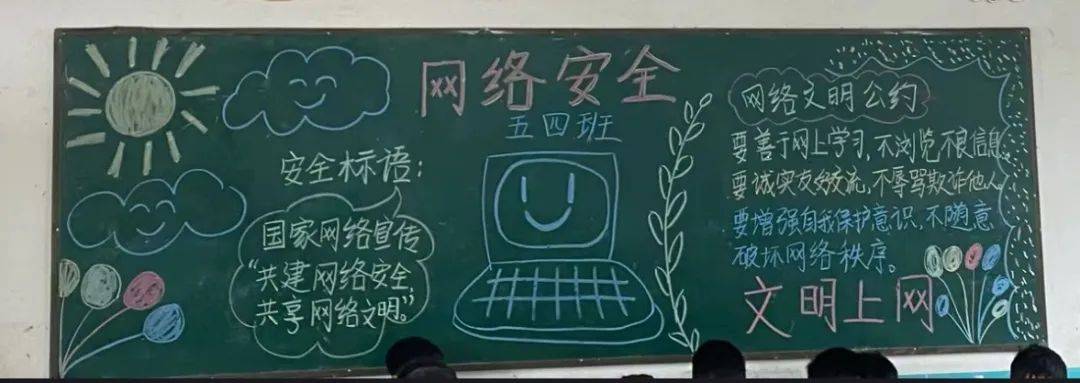 网络安全
五四班
安全标语：
国家网络宣传
“共建网络安全，
共享网络文明。”
网络文明公约
要善于网上学习，不浏览不良信息。
要诚实友好交流，不辱骂欺诈他人。
要增强自我保护意识，不随意
破坏网络秩序。
文明上网